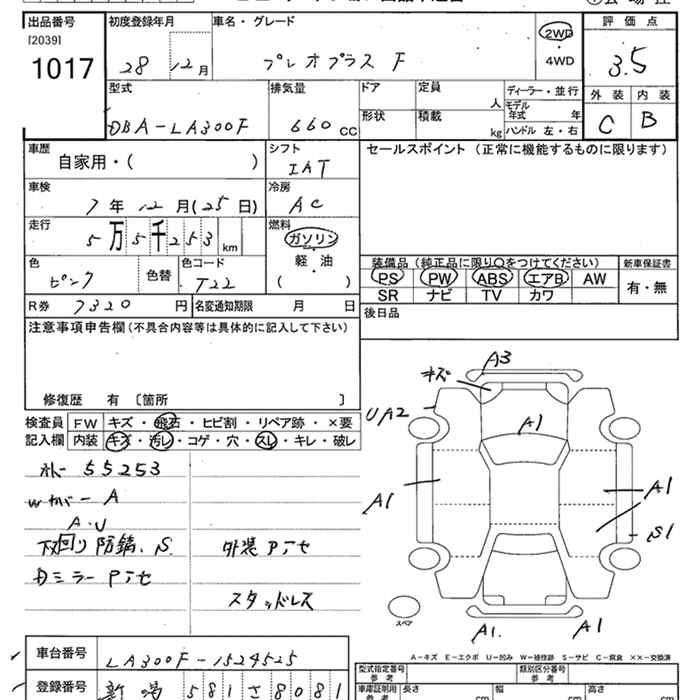 出品番号
[2039]
1017
初度登録年月
28 12月
車名・グレード
プレオプラス F
2WD
・
4WD
評価点
3.5
外装 内装
C B
型式
DBA-LA300F
排気量
660 CC
ドア
形状
定員
人
積載
kg
ディーラー・並行
モデル
年式 年
ハンドル 左・右
車歴
自家用・( )
シフト
IAT
セールスポイント (正常に機能するものに限ります)
車検
7年12月(25日)
冷房
AC
走行
5万5千253 km
燃料
ガソリン
・
軽・油
( )
色
ピンク
色替
色コード
T22
装備品 (純正品に限り○をつけてください)
PS PW ABS エアB AW
SR ナビ TV カワ
新車保証書
有・無
R券 7320円
名変通知期限 月 日
後日品
注意事項申告欄(不具合内容等は具体的に記入して下さい)
修復歴 有 〔箇所 〕
検査員
記入欄
FW キズ・飛石・ヒビ割・リペア跡・×要
内装 キズ・汚レ・コゲ・穴・スレ・キレ・破レ
55253
A
A・U
下回り防錆、S
外装 Pテセ
DミラーPテセ
スタッドレス
A3
キズ
UA2
A1
A1
A1
S1
A1.
A1
スペア
A-キズ E-エクボ U-凹み W-補修跡 S-サビ C-腐食 ××-交換済
車台番号
LA300F-1524525
登録番号
新潟 581 さ 8081
型式指定番号
参考
類別区分番号
参考
車庫証明用
参考
長さ cm
幅 cm
高さ cm